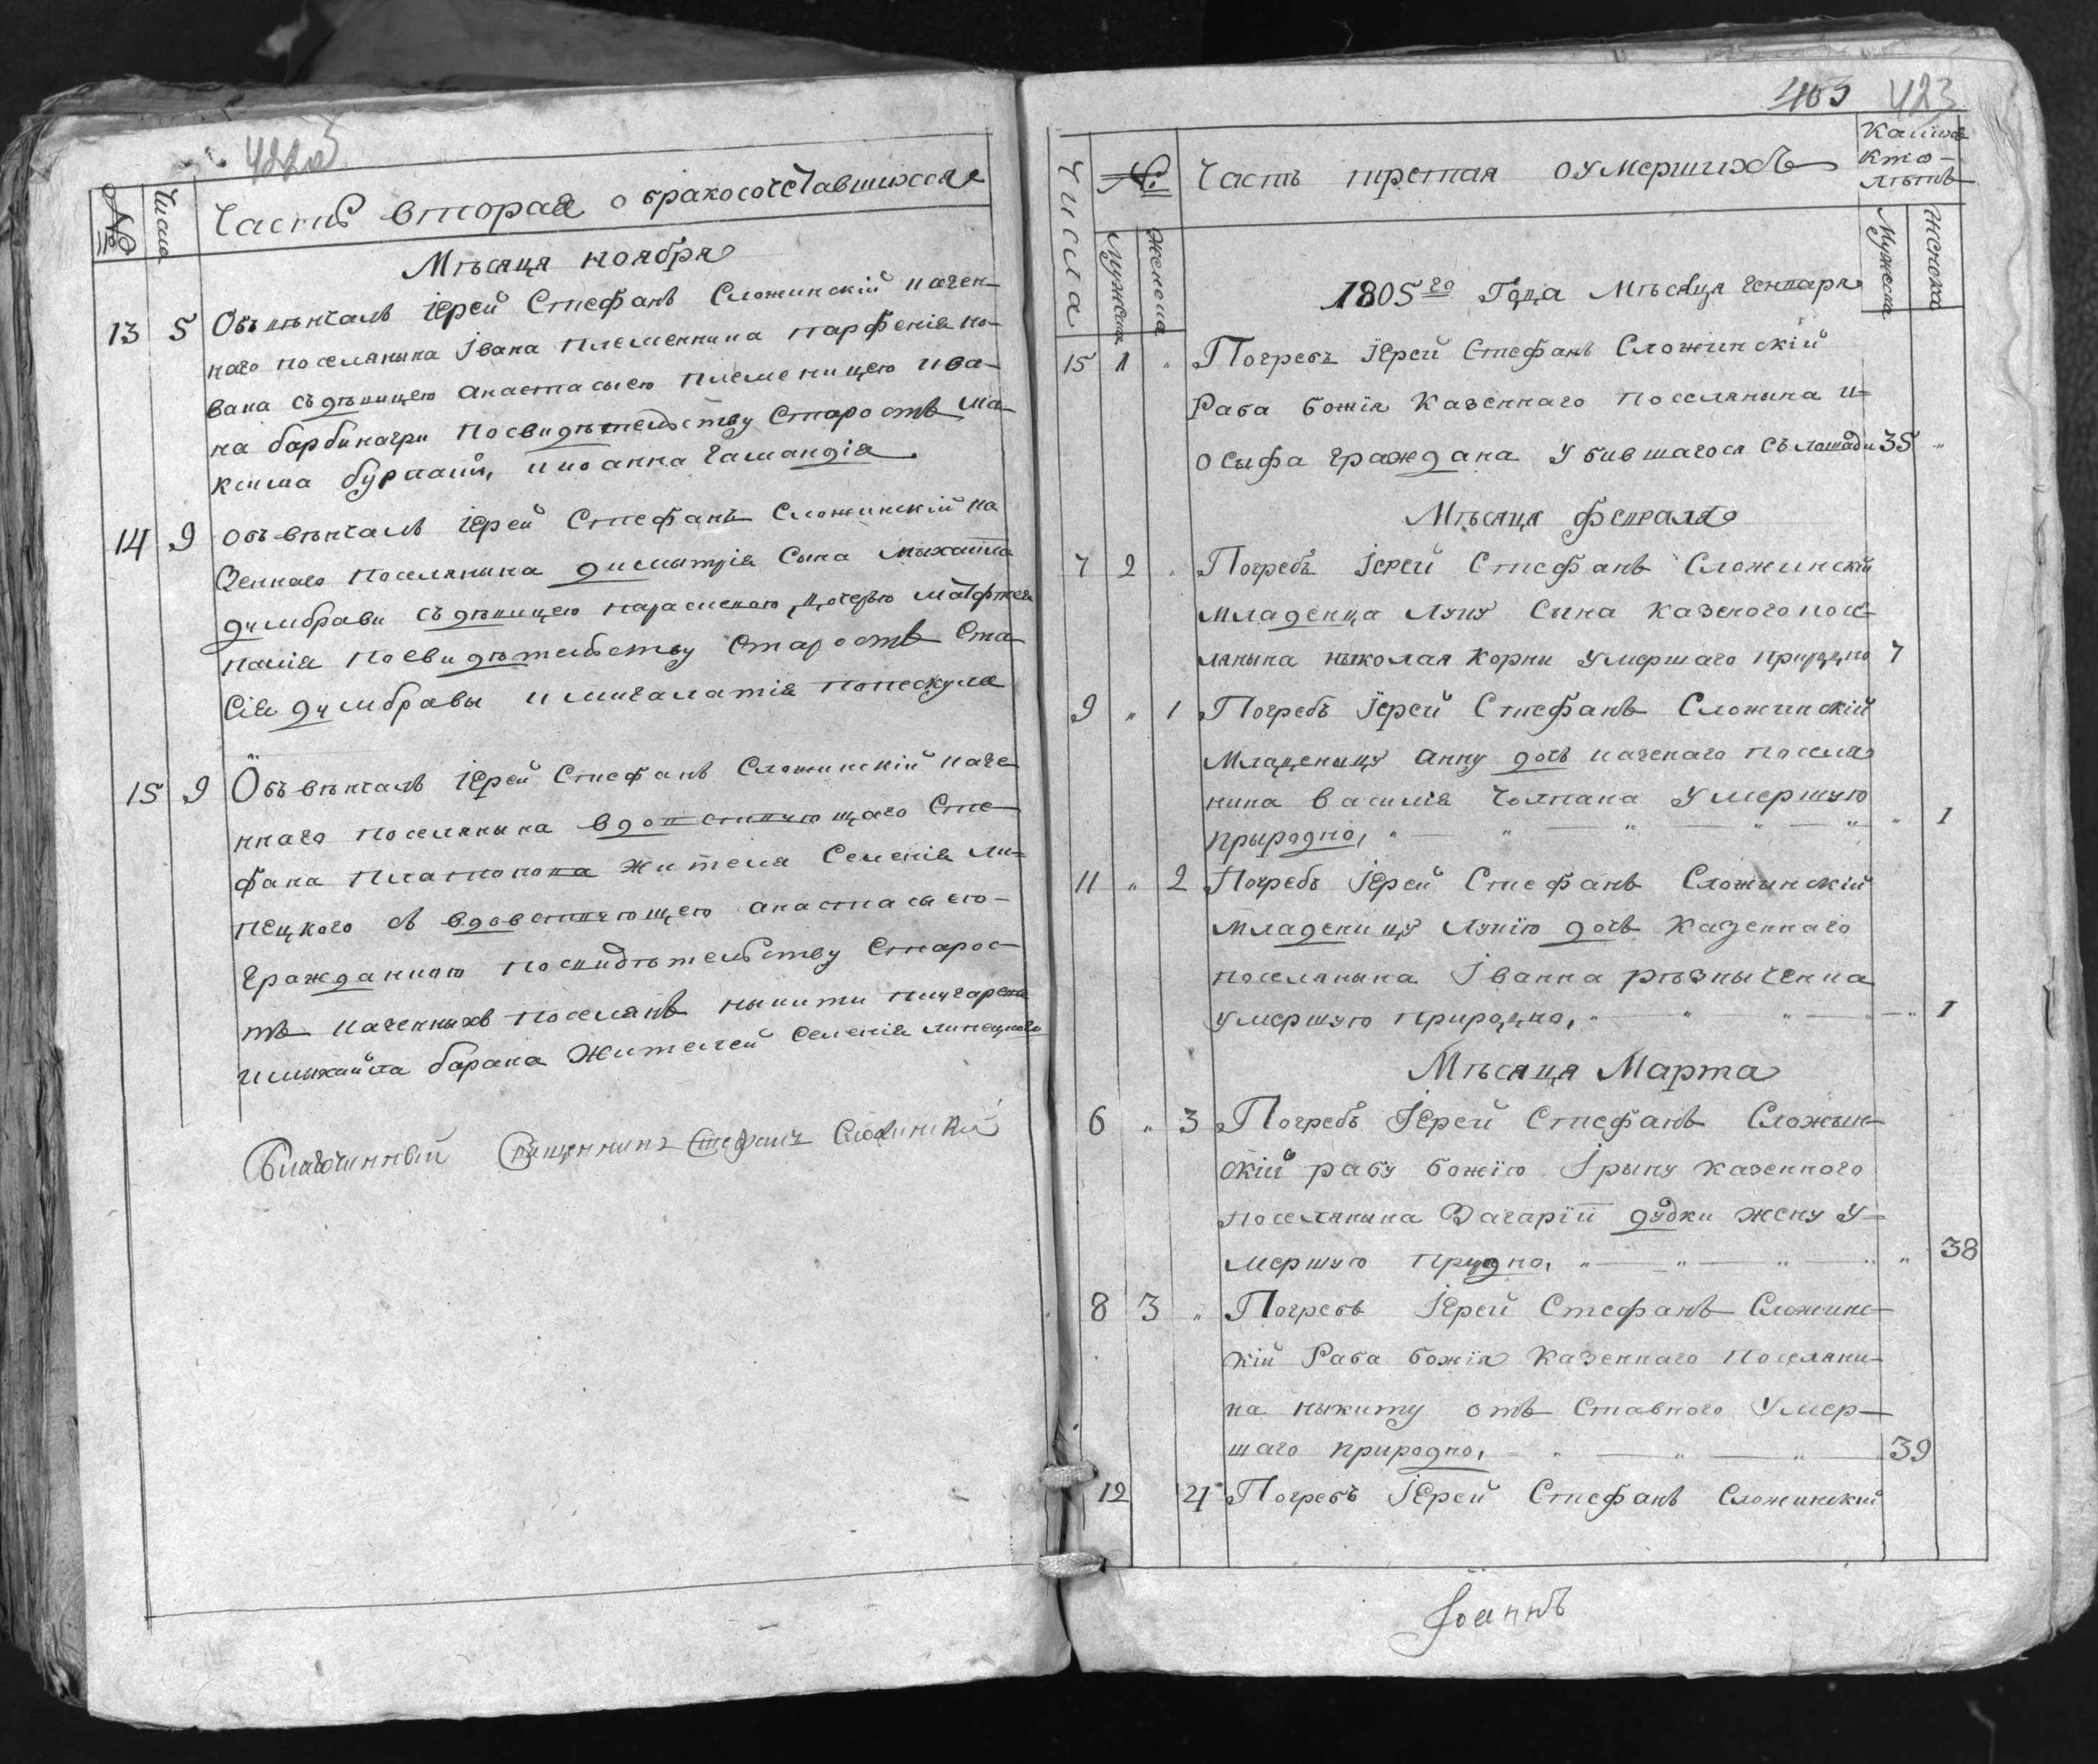 422об
№ Числа Часть вторая о бракосочетавшихся
Мѣсяца ноября
13 5 Объвѣнчалъ Іерей Стефанъ Сложинскій казен-
наго поселянина Івана племенника парфенія ко-
вана съ дѣвицею анастасыею племеницею ива-
на барбинагри посвидѣтельству Старостъ ма-
ксима бурлаши, и иоанна гамандія
14 9 Объвѣнчалъ Іерей Стефанъ Сложинскій ка
зеннаго поселянына дисмытрія Сына мыхаила
думбравы съ дѣвицею параскевою дочерью матфея
посвидѣтельству Старостъ Ста
сія думбравы и мигалатія попескула
15 9 Объвѣнчалъ Іерей Стефанъ Сложинскій казе
ннаго поселянына вдовствующаго Сте-
фана платонова жителя Селенія ли-
пецкого съ вдовствующею анастасыею-
гражданкою посвидѣтельству Старос-
тъ казенныхъ поселянъ ныкиты
имыхайла барана жителей селенія липецкого
Благочинный Священникъ Стефанъ Сложинскій
403 423
Числа № Часть третая оумершихъ
Каких
кто-
лѣтъ
Мужеска Женска Мужеска Женска
1805го Года Мѣсяца генваря
15 1 " Погребъ Іерей Стефанъ Сложинскій
Раба божія Казеннаго поселянына и-
осыфа гражданa убившагося съ лошади 35 "
Мѣсяца февраля
7 2 " Погребъ Іерей Стефанъ Сложинскій
младенца лупу сына казеного посе-
лянына ныколая корни умершаго природно 7
9 " 1 Погребъ Іерей Стефанъ Сложинскій
младеницу анну дочь казенаго поселя
нина василія Чолпана умершую
прыродно, " — " — " — " — " " 1
11 " 2 Погребъ Іерей Стефанъ Сложинскій
младеницу лукію дочь казеннаго
поселянына Іванна рѣзныченка
умершую природно, " 1
Мѣсяца Марта
6 " 3 Погребъ Іерей Стефанъ Сложын-
скій рабу божію Ірыну казенного
поселянына Захарій дудки жену у-
мершую " — " — " — " " 38
8 3 " Погребъ Іерей Стефанъ Сложинс-
кій Раба божія казеннаго поселяни-
на ныкиту отъ Ставного умер-
шаго природно, — " — " — " — 39
12 4 Погребъ Іерей Стефанъ Сложинский
Іоаннъ